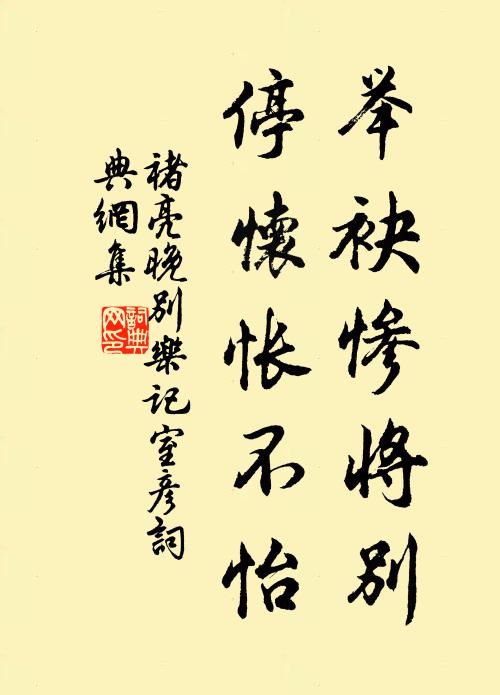 举袂惨将别
停懷怅不怡
褚亮晚别樂记室彦詞
典網集
詞典
网印